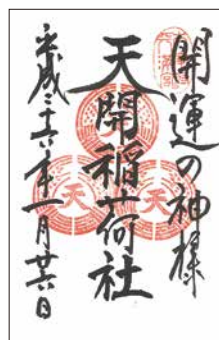 開運の神様
天開稲荷社
平成二十六年一月廿六日
天
天